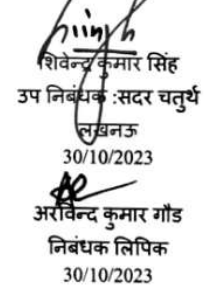 शिवेन्द्र कुमार सिंह
उप निबंधक :सदर चतुर्थ
लखनऊ
30/10/2023
अरविन्द कुमार गौड
निबंधक लिपिक
30/10/2023